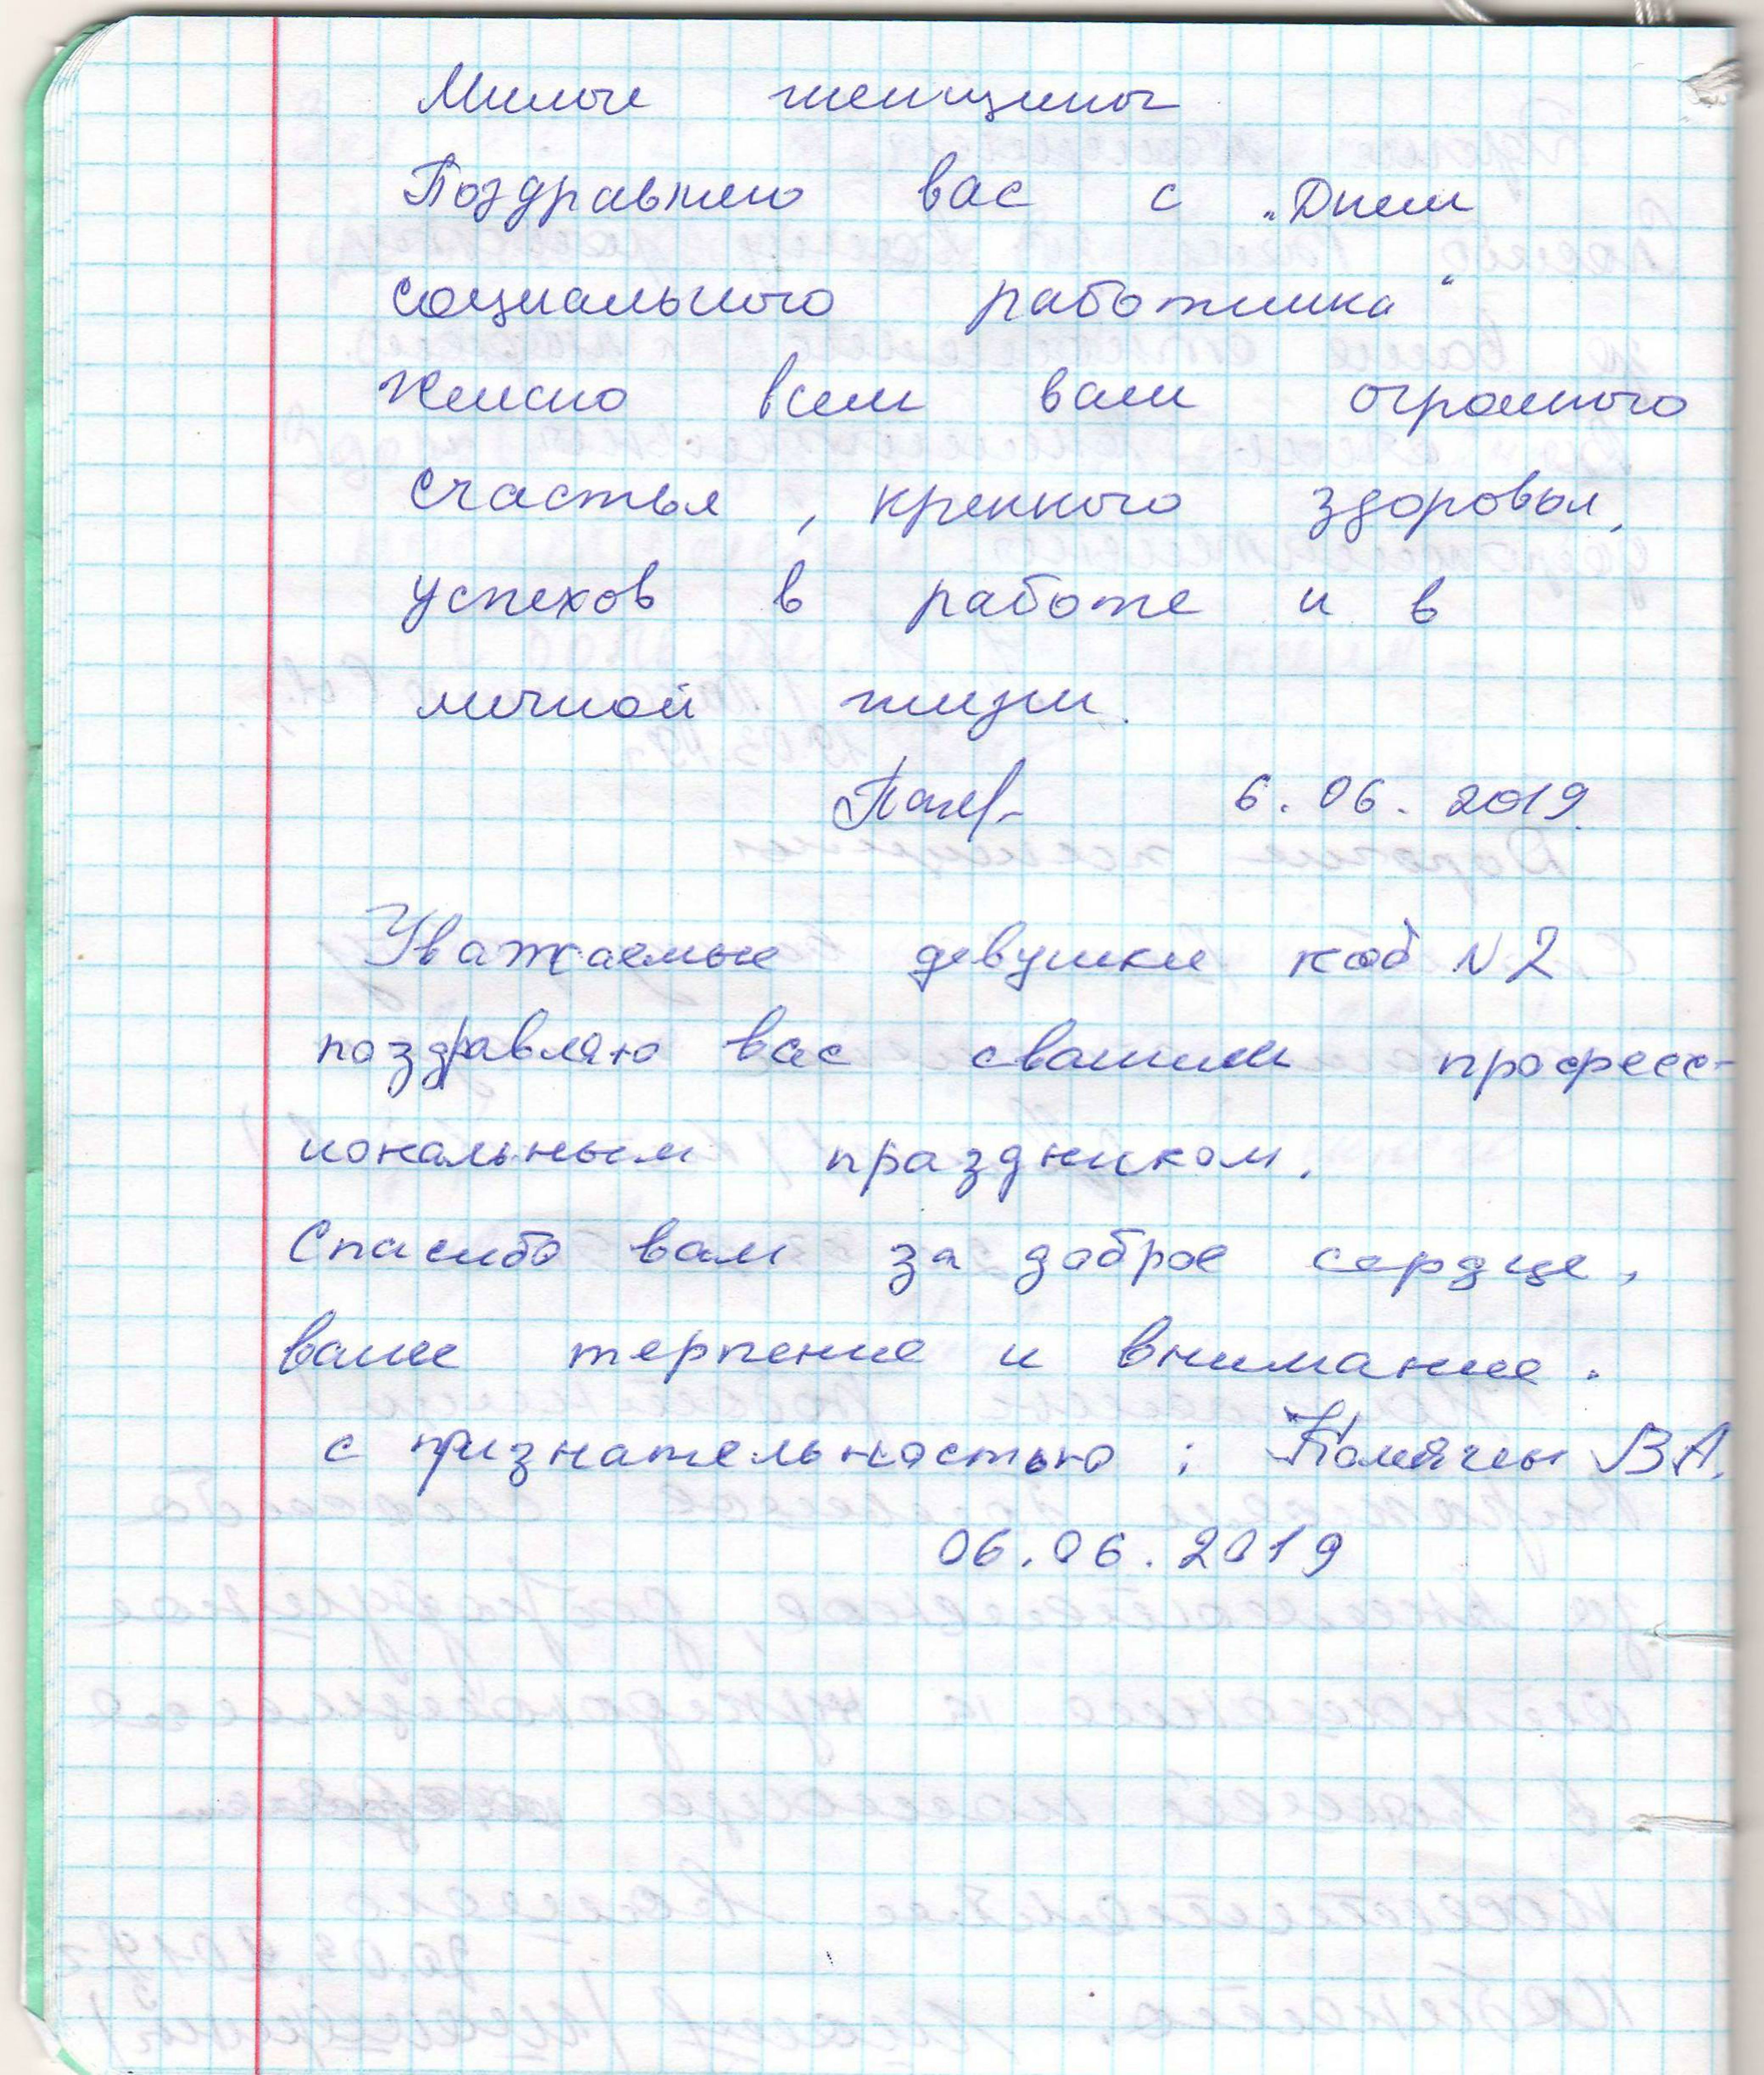 Милые женщины
Поздравляю вас с „Днем
социального работника“
Желаю всем вам огромного
счастья, крепкого здоровья,
успехов в работе и в
личной жизни.
6.06.2019.
Уважаемые девушки каб N2
поздравляю вас свашим професс-
иональным праздником.
Спасибо вам за доброе сердце,
ваше терпение и внимание.
с признательностью: ВА.
06.06.2019